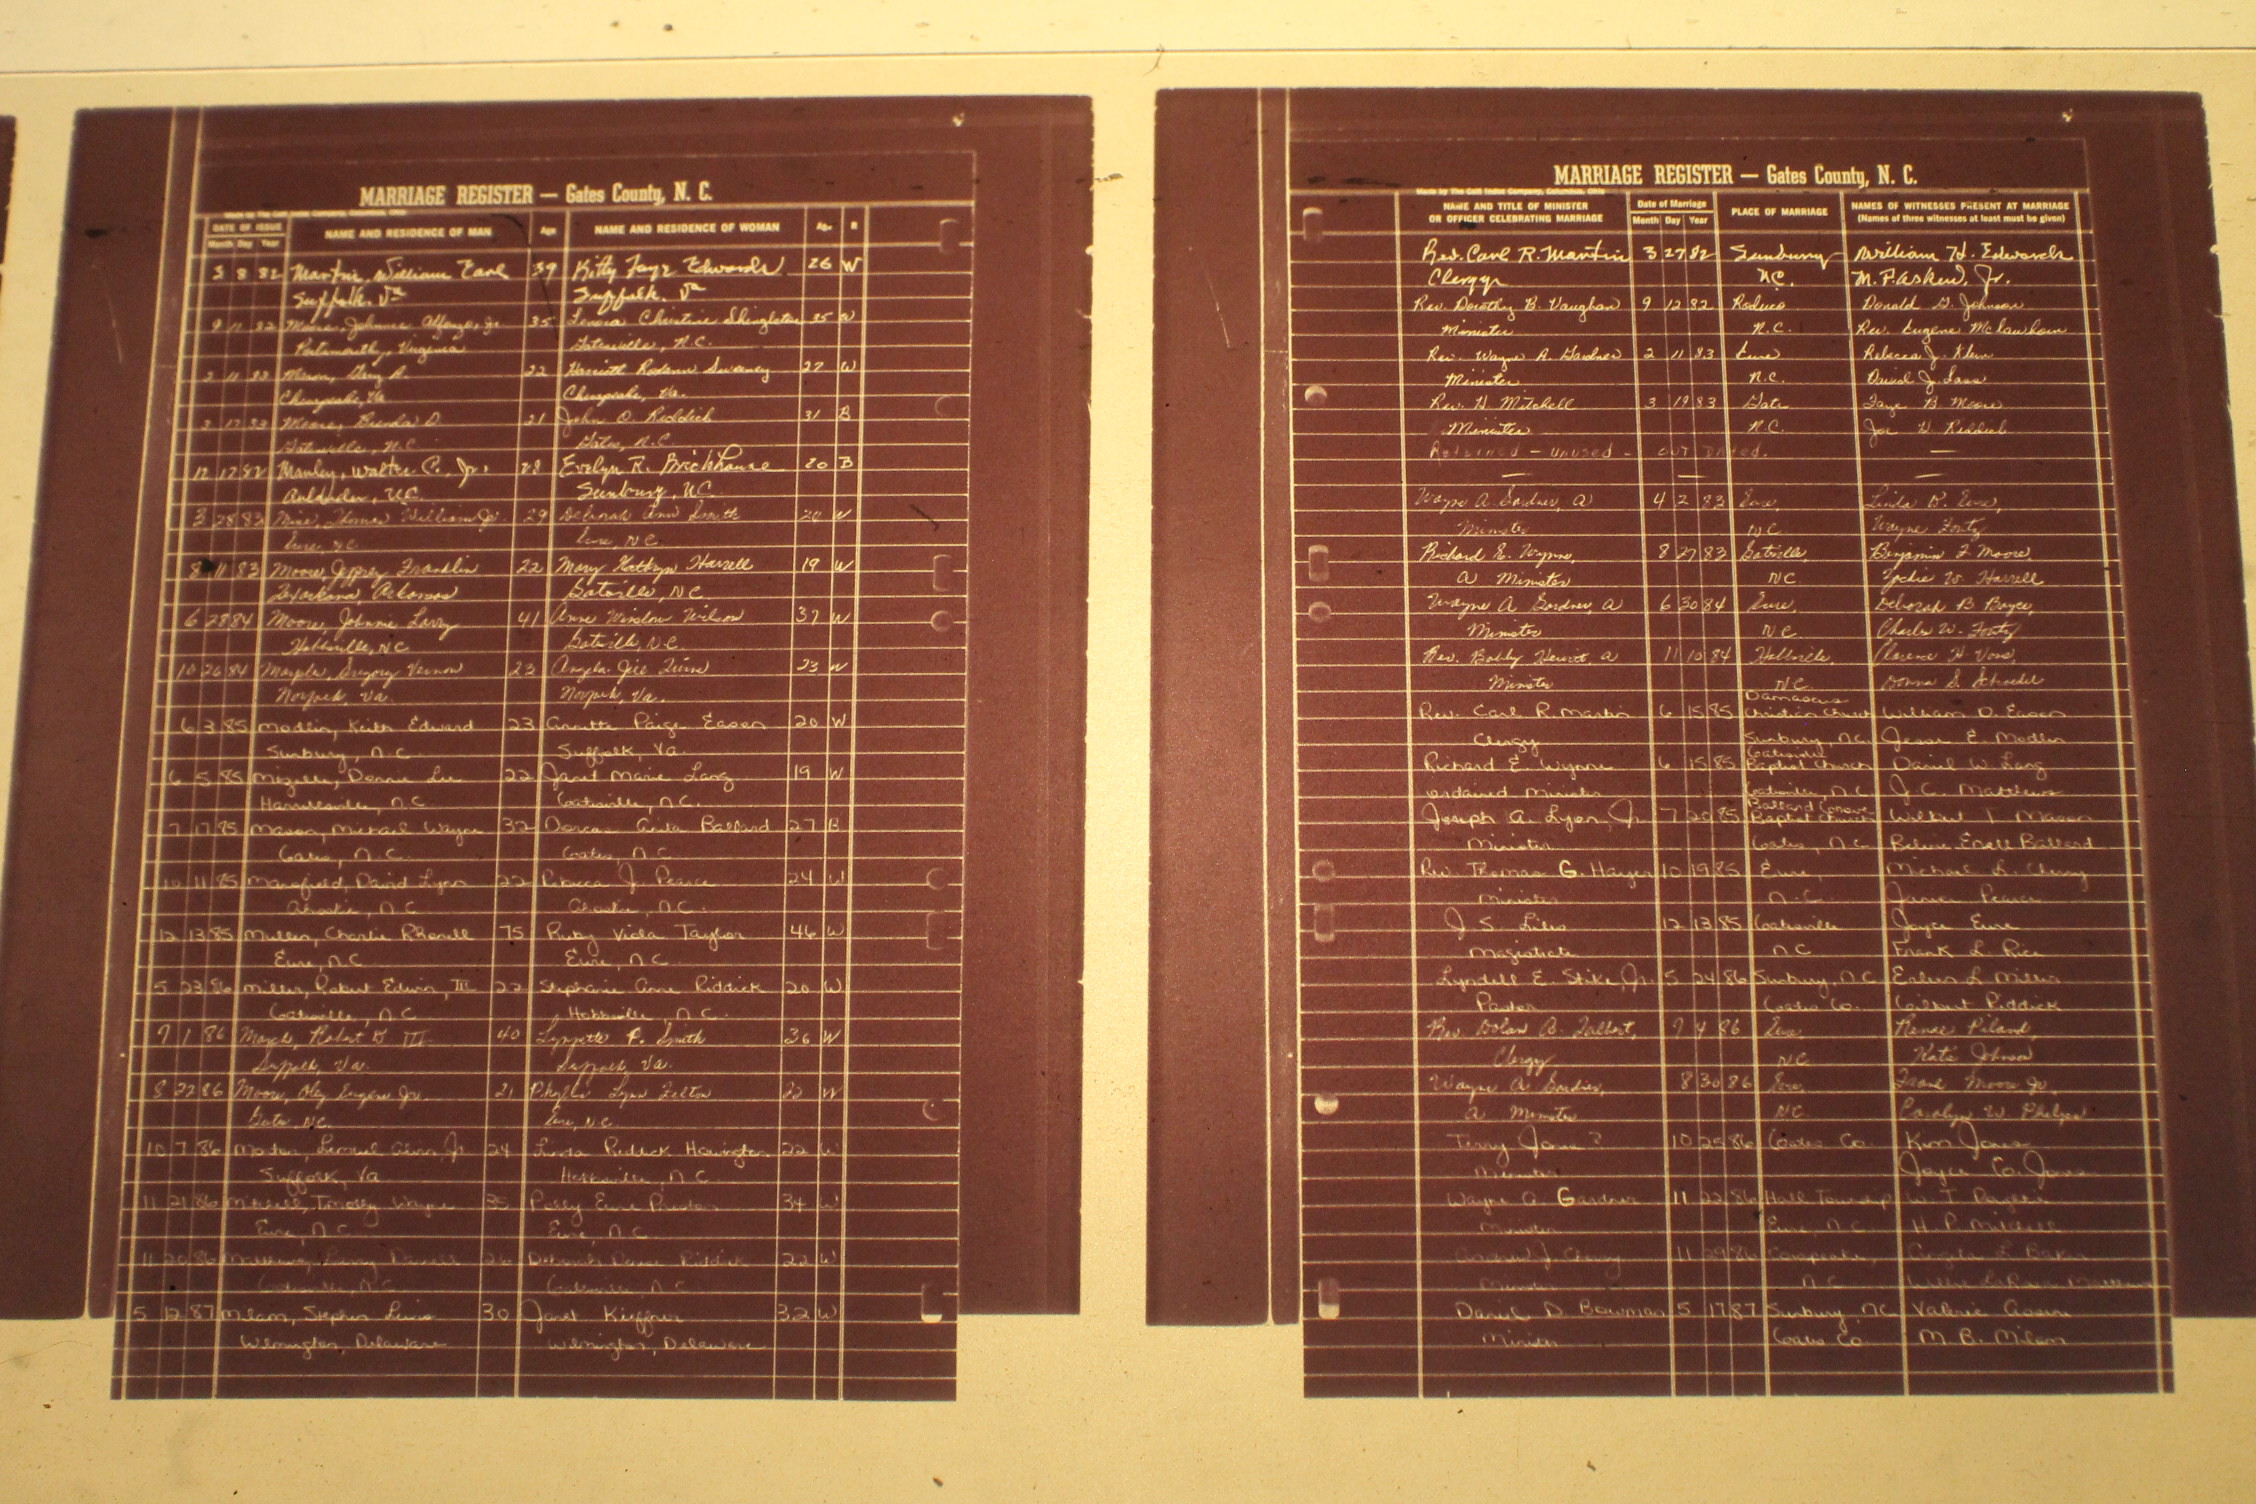 MARRIAGE REGISTER — Gates County, N. C.
DATE OF ISSUE
Month Day Year
NAME AND RESIDENCE OF MAN
Age
NAME AND RESIDENCE OF WOMAN
Age
R
3 8 82 Martin, William Earl 39 Kitty Faye Edwards 26 W
Suffolk, Va Suffolk, Va
9 11 82 Moore, Johnnie Alfonzo, Jr 35 Lenora Christine Shingleton 35 W
Portsmouth, Virginia Gatesville, N.C.
22 Harriett Sweeney 27 W
Chesapeake, Va Chesapeake, Va.
Moore, Brenda D 21 John O. Riddick 31 B
Gatesville, N.C. Gates, N.C.
12 17 82 Manley, Walter C. Jr. 28 Evelyn R. Brickhouse 20 B
Aulander, N.C. Sunbury, N.C.
3 28 83 Thomas William Jr. 29 Deborah Ann Smith 20 W
Eure, NC Eure, NC
8 11 83 Moore, Jeffrey Franklin 22 Mary Kathryn Harrell 19 W
Texarkana, Arkansas Gatesville, NC
6 28 84 Moore, Johnnie Larry 41 Anne Winslow Wilson 37 W
Hobbsville, NC Gatesville, NC
10 26 84 Gregory Vernon 23 Angela 23 W
Norfolk, Va. Norfolk, Va.
6 3 85 Modlin, Keith Edward 23 Annette Paige Eason 20 W
Sunbury, N.C. Suffolk, Va.
6 5 85 Mizelle, Donnie Lee 22 Janet Marie Lang 19 W
Harrellsville, N.C. Gatesville, N.C.
7 17 85 Mason, Michael Wayne 32 Dorcas Anita Ballard 27 B
Gates, N.C. Gates, N.C.
10 11 85 Mansfield, David Lynn 22 Rebecca J. Pearce 24 W
Ahoskie, N.C. Ahoskie, N.C.
12 13 85 Mullen, Charlie 75 Ruby Viola Taylor 46 W
Eure, N.C. Eure, N.C.
5 23 86 Miller, Robert Edwin, III 22 Stephanie Anne Riddick 20 W
Gatesville, N.C. Hobbsville, N.C.
7 1 86 March, Robert D III 40 Lynnette P. Smith 36 W
Suffolk, Va. Suffolk, Va.
8 22 86 Moore, Oley Eugene Jr. 21 Phyllis Lynn Felton 22 W
Gates NC Eure, NC
10 7 86 Jr. 24 Linda Riddick 22 W
Suffolk, Va Hobbsville, N.C.
11 21 86 Mitchell, Timothy Wayne 35 Polly Eure 34 W
Eure, N.C. Eure, N.C.
11 20 86 26 Deborah Riddick 22 W
Gatesville, N.C. Gatesville, N.C.
5 12 87 Milam, Stephen Lewis 30 Janet Kieffner 32 W
Wilmington, Delaware Wilmington, Delaware
MARRIAGE REGISTER — Gates County, N. C.
Made by The Cott Index Company, Columbus, Ohio
NAME AND TITLE OF MINISTER
OR OFFICER CELEBRATING MARRIAGE
Date of Marriage
Month Day Year
PLACE OF MARRIAGE
NAMES OF WITNESSES PRESENT AT MARRIAGE
(Names of three witnesses at least must be given)
Rev. Carl R. Martin 3 27 82 Sunbury William H. Edwards
Clergy NC. M. P. Askew, Jr.
Rev. Dorothy B. Vaughan 9 12 82 Roduco Donald G. Johnson
Minister N.C. Rev. Eugene McLawhorn
Rev. Wayne A. Gardner 2 11 83 Eure Rebecca J. Klein
Minister N.C. David J.
Rev. H Mitchell 3 19 83 Gates Faye B. Moore
Minister N.C. Joe H. Riddick
Returned - unused - out dated. —
—
Wayne A. Gardner, A 4 2 83 Eure, Linda B. Eure,
Minister NC Wayne
Richard E. Wynne, 8 27 83 Gatesville, Benjamin F Moore,
A Minister NC W. Harrell
Wayne A Gardner, A 6 30 84 Eure, Deborah B Boyce,
Minister NC Charles W.
Rev. Bobby A 11 10 84 Hobbsville, Clarence H Voss,
Minister NC Donna S. Schroedel
Damascus
Rev. Carl R. Martin 6 15 85 Christian Church William D. Eason
Clergy Sunbury, N.C. Jesse E. Modlin
Gatesville
Richard E. Wynne 6 15 85 Baptist Church Daniel W. Lang
ordained minister Gatesville, N.C. J. C. Matthews
Ballard Grove
Joseph A. Lyon, Jr. 7 20 85 Baptist Church Wilbert T Mason
Minister Gates, N.C. Ballard
Rev. Thomas G. 10 19 85 Eure, Michael L. Cherry
minister N.C. Janice Pearce
J. S. Liles 12 13 85 Gatesville Joyce Eure
Magistrate NC Frank L. Rice
Lyndell E. Stike, Jr. 5 24 86 Sunbury, N.C. L. Miller
Pastor Gates Co. Gilbert Riddick
Rev. Dolan A. Talbert, 7 4 86 Eure, Renee Piland,
Clergy NC Kate Johnson
Wayne A. Gardner, 8 30 86 Eure, Frank Moore Jr,
A Minister NC Carolyn W. Phelps
Terry Jones? 10 25 86 Gates Co. Kim Jones
Minister Joyce Co. Jones
Wayne A. Gardner 11 22 86 Hall Township W. T.
Minister Eure, N.C. H. P. Mitchell
Andrew J. Cherry 11 29 86 Corapeake, Angela L. Baker
Minister N.C.
Daniel D. Bowman 5 17 87 Sunbury, NC Valerie
Minister Gates Co. M. B. Milam